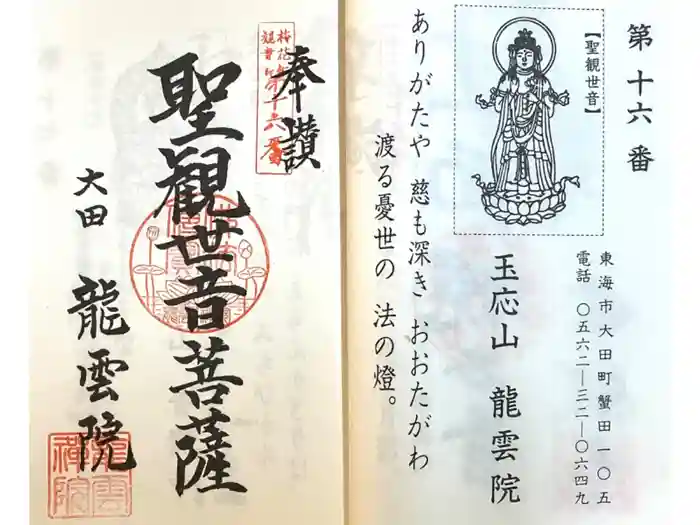 第十六番
【聖観世音】
東海市大田町蟹田一〇五
電話 〇五六二―三二―〇六四九
玉応山 龍雲院
ありがたや 慈も深き おおたがわ
渡る憂世の 法の燈。
奉讃
第十六番
聖観世音菩薩
大田 龍雲院
龍雲
禅院